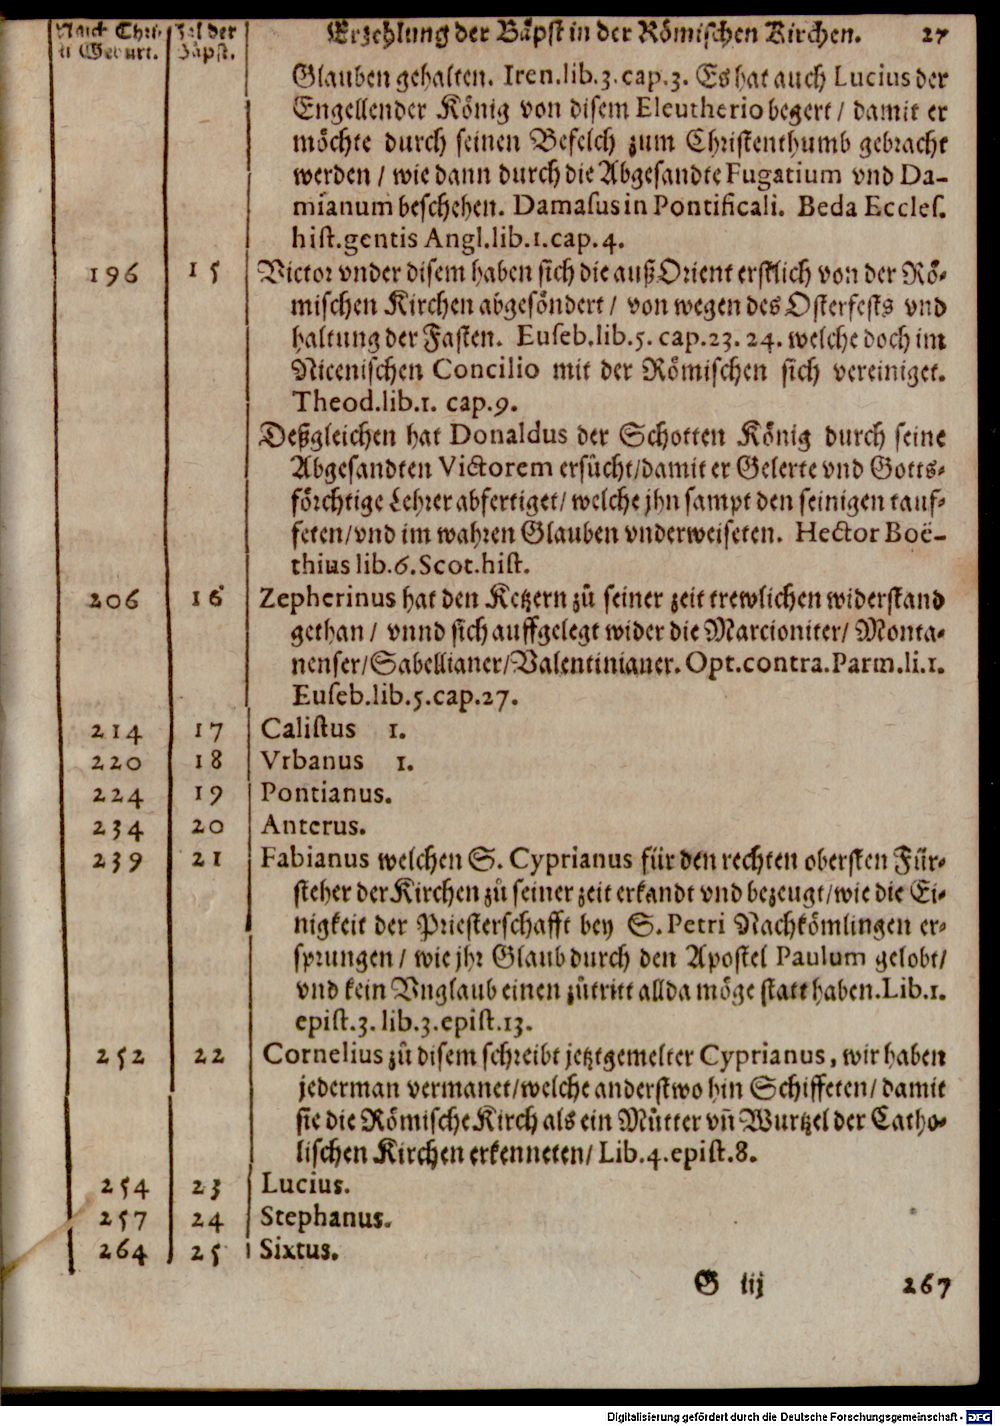 Nach Chri- Zal der Erzehlung der Bäpst in der Römischen Kirchen. 27
ti Geburt. Bäpst.
Glauben gehalten. Iren.lib.3.cap.3. Es hat auch Lucius der
Engellender König von disem Eleutherio begert / damit er
möchte durch seinen Befelch zum Christenthumb gebracht
werden / wie dann durch die Abgesandte Fugatium vnd Da-
mianum beschehen. Damasus in Pontificali. Beda Eccles.
hist.gentis Angl.lib.1.cap.4.
196 15 Victor vnder disem haben sich die auß Orient erstlich von der Rö-
mischen Kirchen abgesöndert / von wegen des Osterfests vnd
haltung der Fasten. Euseb.lib.5. cap.23. 24. welche doch im
Nicenischen Concilio mit der Römischen sich vereiniget.
Theod.lib.1. cap.9.
Deßgleichen hat Donaldus der Schotten König durch seine
Abgesandten Victorem ersücht/damit er Gelerte vnd Gotts-
förchtige Lehrer abfertiget/ welche jhn sampt den seinigen tauf-
feten/vnd im wahren Glauben vnderweiseten. Hector Boë-
thius lib.6.Scot.hist.
206 16 Zepherinus hat den Ketzern zů seiner zeit trewlichen widerstand
gethan / vnnd sich auffgelegt wider die Marcioniter/ Monta-
nenser/Sabellianer/Valentinianer. Opt.contra.Parm.li.1.
Euseb.lib.5.cap.27.
214 17 Calistus 1.
220 18 Vrbanus 1.
224 19 Pontianus.
234 20 Anterus.
239 21 Fabianus welchen S. Cyprianus für den rechten obersten Für-
steher der Kirchen zů seiner zeit erkandt vnd bezeugt/wie die Ei-
nigkeit der Priesterschafft bey S. Petri Nachkömlingen er-
sprungen / wie jhr Glaub durch den Apostel Paulum gelobt/
vnd kein Vnglaub einen zůtritt allda möge statt haben.Lib.1.
epist.3.lib.3.epist.13.
252 22 Cornelius zů disem schreibt jetztgemelter Cyprianus, wir haben
jederman vermanet/welche anderstwo hin Schiffeten/ damit
sie die Römische Kirch als ein Můtter vñ Wurtzel der Catho-
lischen Kirchen erkenneten/ Lib.4.epist.8.
254 23 Lucius.
257 24 Stephanus.
264 25 Sixtus.
G iij 267
Digitalisierung gefördert durch die Deutsche Forschungsgemeinschaft - DFG